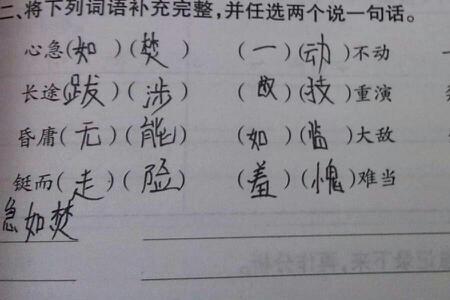 二、将下列词语补充完整,并任选两个说一句话。
心急(如)(焚) (一)(动)不动
长途(跋)(涉) (故)(技)重演
昏庸(无)(能) (如)(临)大敌
铤而(走)(险) (羞)(愧)难当
急如焚